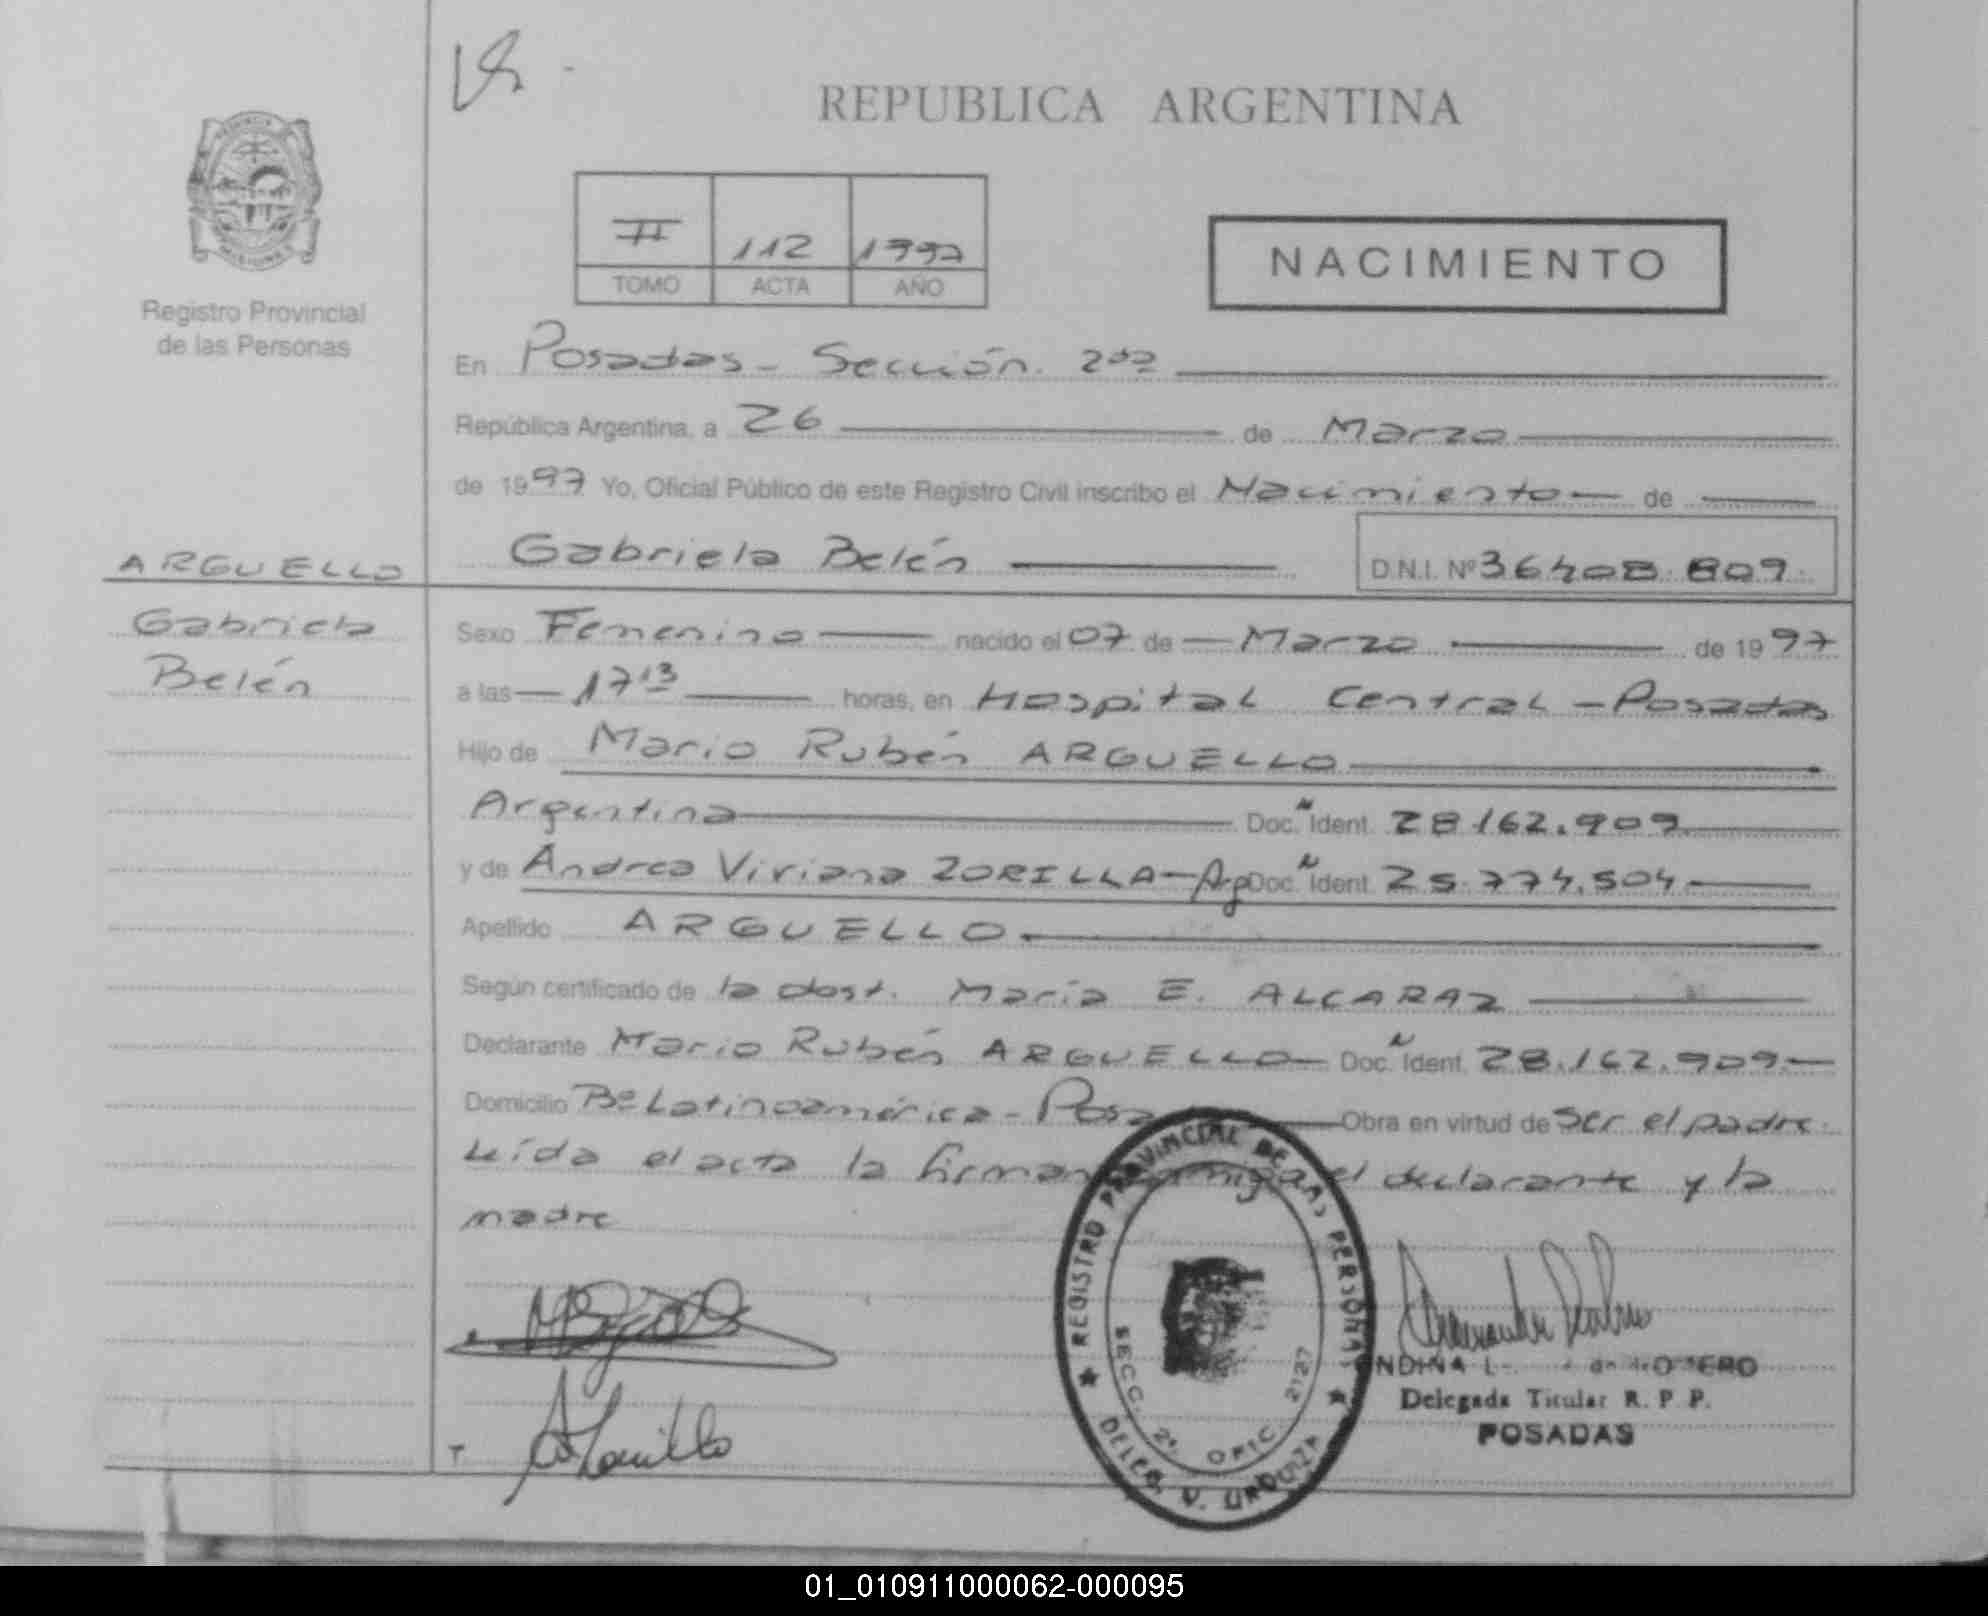 REPUBLICA ARGENTINA
II 112 1997
TOMO ACTA AÑO
NACIMIENTO
Registro Provincial
de las Personas
En Posadas - Sección 2da
República Argentina, a 26 de Marzo
de 1997 Yo, Oficial Público de este Registro Civil inscribo el Nacimiento de
ARGUELLO
Gabriela Belén D.N.I. Nº 36408.809
Gabriela
Belén
Sexo Femenino nacido el 07 de Marzo de 1997
a las 17 13 horas, en Hospital Central - Posadas
Hijo de Mario Rubén ARGUELLO
Argentina Doc. Ident. 28.162.909
y de Andrea Viviana ZORILLA - Arg Doc. Ident. 25.774.504
Apellido ARGUELLO
Según certificado de la obst. María E. ALCARAZ
Declarante Mario Rubén ARGUELLO Doc. Ident. 28.162.909
Domicilio Bº Latinoamérica - Posa Obra en virtud de ser el padre.
Leída el acta la firman conmigo el declarante y la
madre
REGISTRO PROVINCIAL DE LAS PERSONAS
SECC. 2ª OFIC. 2127
DELEG. V. URQUIZA
Delegada Titular R. P. P.
POSADAS
01_010911000062-000095